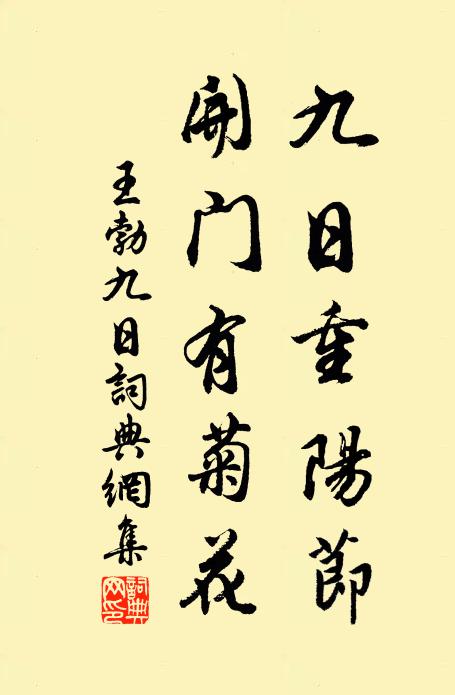 九日重陽節
開門有菊花
王勃九日詞典網集
詞典網印